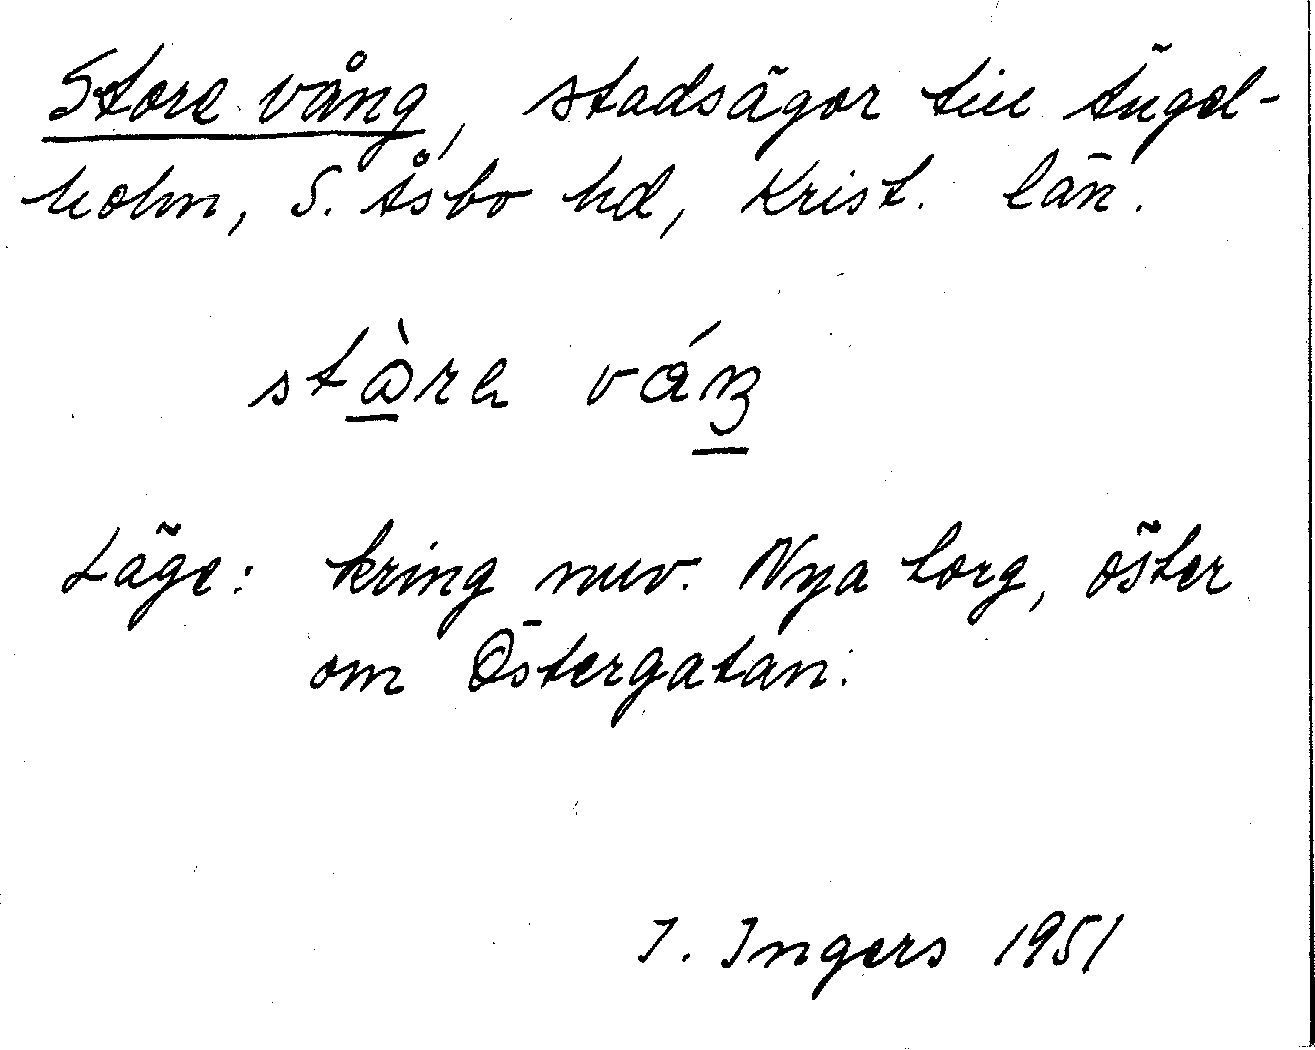 Store vång, stadsägor till Ängel-
holm, S. Åsbo hd, Krist. län.
stò̠re váŋ̠
Läge: kring nuv. Nya torg, öster
om Östergatan.
I. Ingers 1951